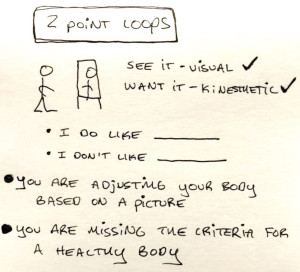 2 POINT LOOPS
SEE IT - VISUAL ✓
WANT IT - KINESTHETIC ✓
• I DO LIKE ________
• I DON'T LIKE ________
• YOU ARE ADJUSTING YOUR BODY
BASED ON A PICTURE
• YOU ARE MISSING THE CRITERIA FOR
A HEALTHY BODY